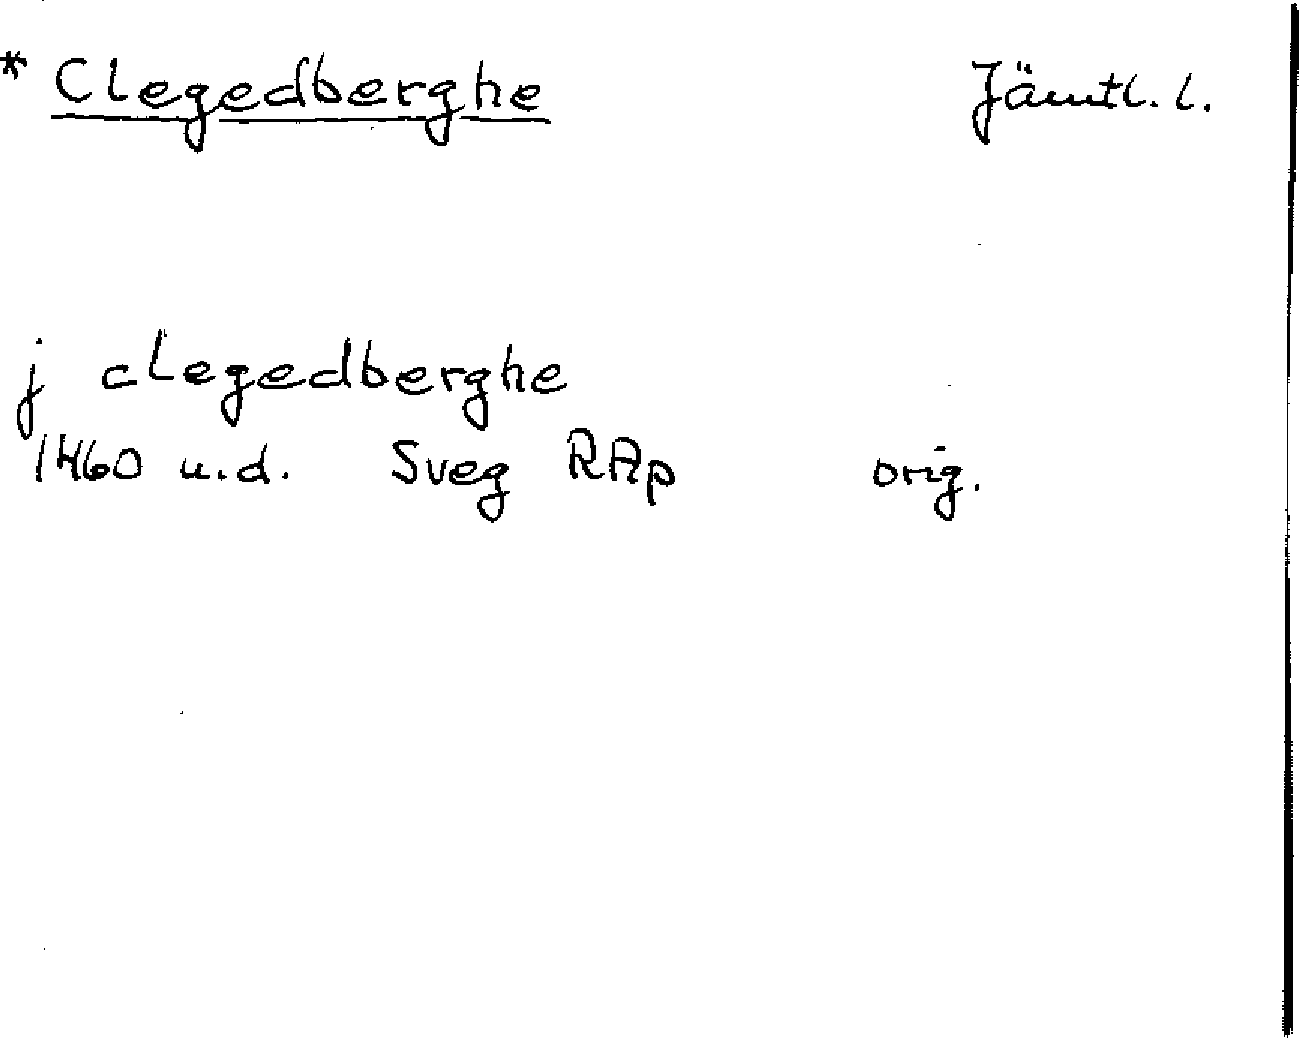 * Clegedberghe Jämtl. l.
j clegedberghe
1460 u.d. Sveg RAp orig.